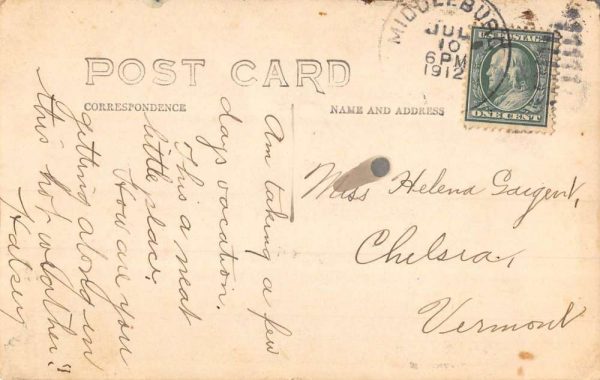 MIDDLEBURG
JUL
10
6 PM
1912
U.S. POSTAGE
ONE CENT
POST CARD
CORRESPONDENCE
NAME AND ADDRESS
Am taking a few
days vacation.
This a neat
little place.
How are you
getting along in
this hot weather?
Halsey
Miss Helena Sargent,
Chelsea,
Vermont